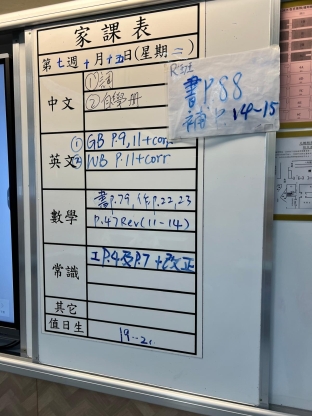 家課表
第七週十月十五日(星期二)
中文
①詞
②自學册
英文
① GB P.9, 11+corr
② WB P.11+corr
數學
書p.79, 作p.22,23
P.47 Rev(11-14)
常識
工P.4及P.7+改正
其它
值日生
19-21
書P.88
補P.14~15